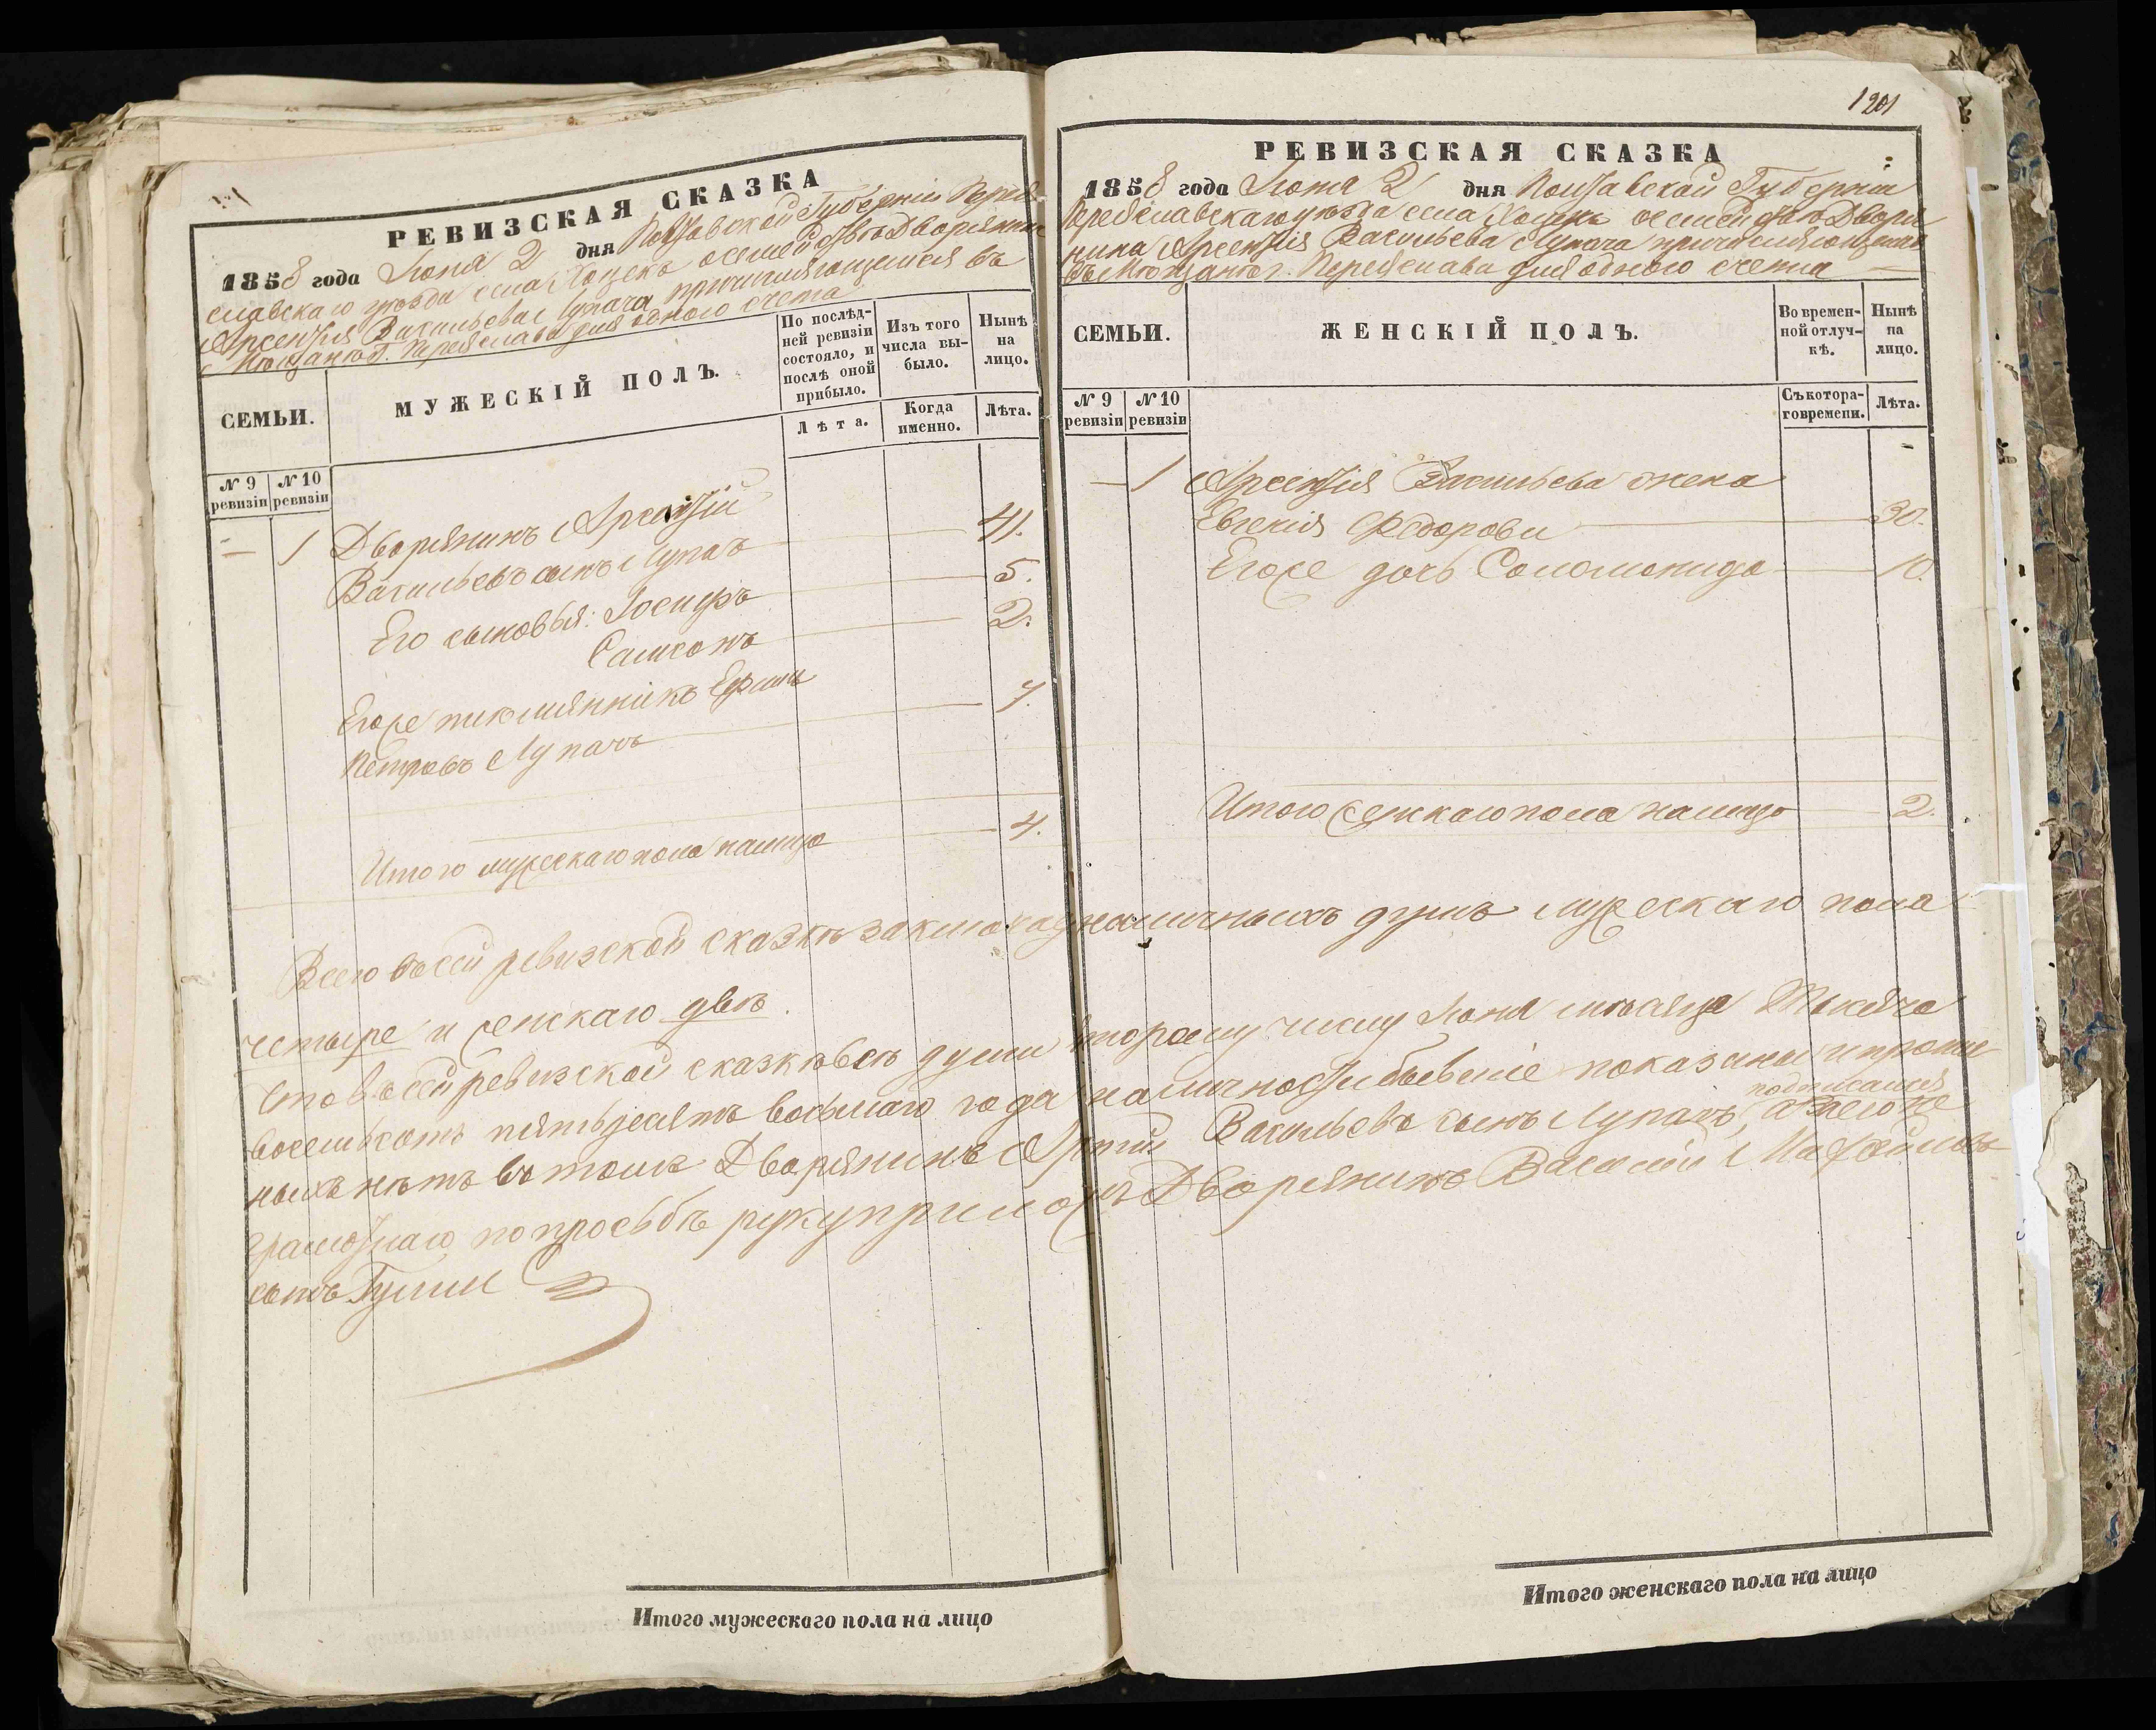 РЕВИЗСКАЯ СКАЗКА
1858 года Іюня 2 дня Полтавской Губерніи Перея
славскаго уѣзда села Хоцекъ осемействѣ Дворянина
Арсентія Васильева Лупача причисляющемся въ
Мѣщанѣ г. Переяслава для одного счета
СЕМЬИ.
МУЖЕСКІЙ ПОЛЪ.
По послѣд-
ней ревизіи
состояло, и
послѣ оной
прибыло.
Изъ того
числа вы-
было.
Нынѣ
на
лицо.
Лѣта.
Когда
именно.
Лѣта.
№ 9
ревизіи
№ 10
ревизіи
— 1 Дворянинъ Арсентій
Васильевъ сынъ Лупачъ 41.
Его сыновья: Іосифъ 5.
Самсонъ 2.
Егоже племянникъ Ефимъ
Петровъ Лупачъ
Итого мужескаго пола налицо 4.
1201
РЕВИЗСКАЯ СКАЗКА
1858 года Іюня 2 дня Полтавской Губерніи
Переяславскаго уѣзда села Хоцекъ осемействѣ Дворя
нина Арсентія Васильева Лупача причисляющемся
въ Мѣщанѣ г. Переяслава для одного счета
СЕМЬИ.
ЖЕНСКІЙ ПОЛЪ.
Во времен-
ной отлуч-
кѣ.
Нынѣ
на
лицо.
№ 9
ревизіи
№ 10
ревизіи
Съ котора-
го времени.
Лѣта.
— 1 Арсентія Васильева жена
Евгенія Федорова 30.
Егоже дочь Соломонида 10.
Итого женскаго пола налицо 2.
Всего въ сей ревизской сказкѣ заключ наличныхъ душъ мужескаго пола
четыре и женскаго двѣ.
Что въ сей ревизской сказкѣ всѣ души второму числу Іюня мѣсяца Тысяча
восемьсотъ пятьдесятъ восьмаго года наличности бывшіе показаны и
ныхъ нѣтъ въ томъ Дворянинъ Васильевъ сынъ Лупачъ, подписался а заего не
грамотнаго по просьбѣ руку приложилъ Дворянинъ Василій
сынъ
Итого мужескаго пола на лицо
Итого женскаго пола на лицо